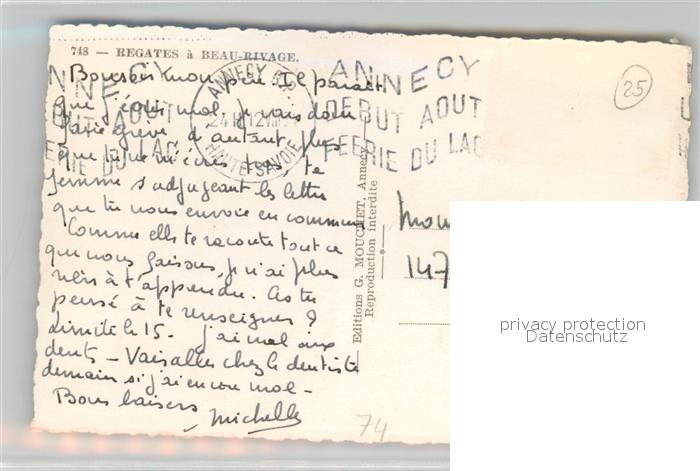 748 — REGATES à BEAU-RIVAGE.
Bonsoir mon . Il paraît
que j'écris mal, je vais donc
faire grève d'autant plus
que tu ne m'écris pas, ta
femme s'adjugeant les lettres
que tu nous envoie en commun
Comme elle te raconte tout ce
que nous faisons, je n'ai plus
rien à t'apprendre. As tu
pensé à te renseigner ?
limite le 15 - j'ai mal aux
dents - Vais aller chez le dentiste
demain si j'ai encore mal -
Bons baisers
Michelle
ANNECY
24 12
HAUTE-SAVOIE
ANNECY
DEBUT AOUT
FEERIE DU LAC
NNECY
BUT AOUT
ERIE DU LAC
Editions G. MOUCHET, Annecy
Reproduction interdite
Mon
147
25
74
privacy protection
Datenschutz